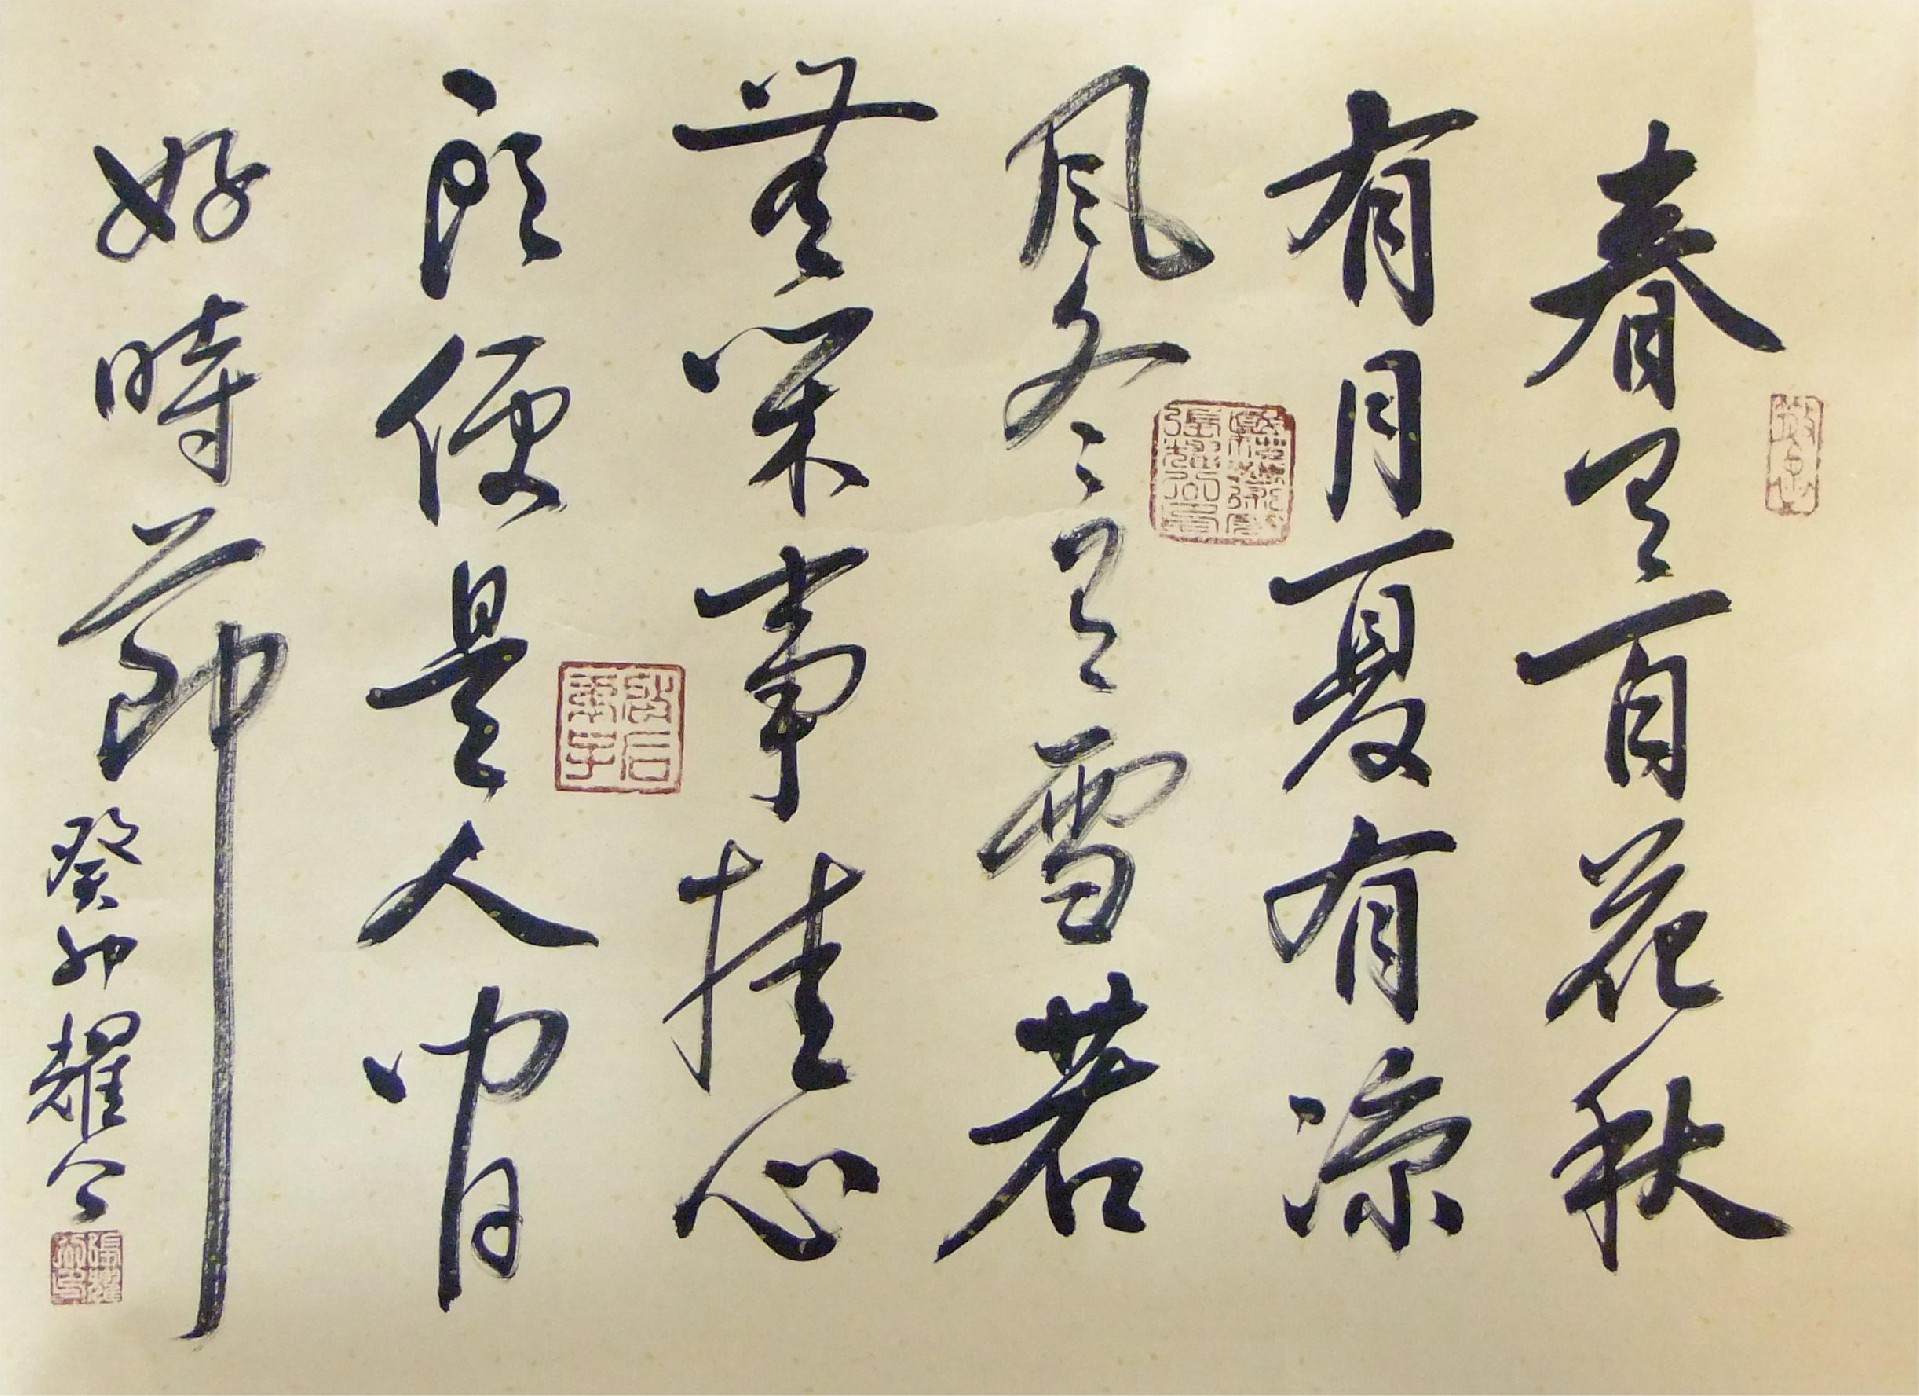 春有百花秋
有月夏有凉
风冬有雪若
無闲事挂心
头便是人间
好時節
癸卯耀